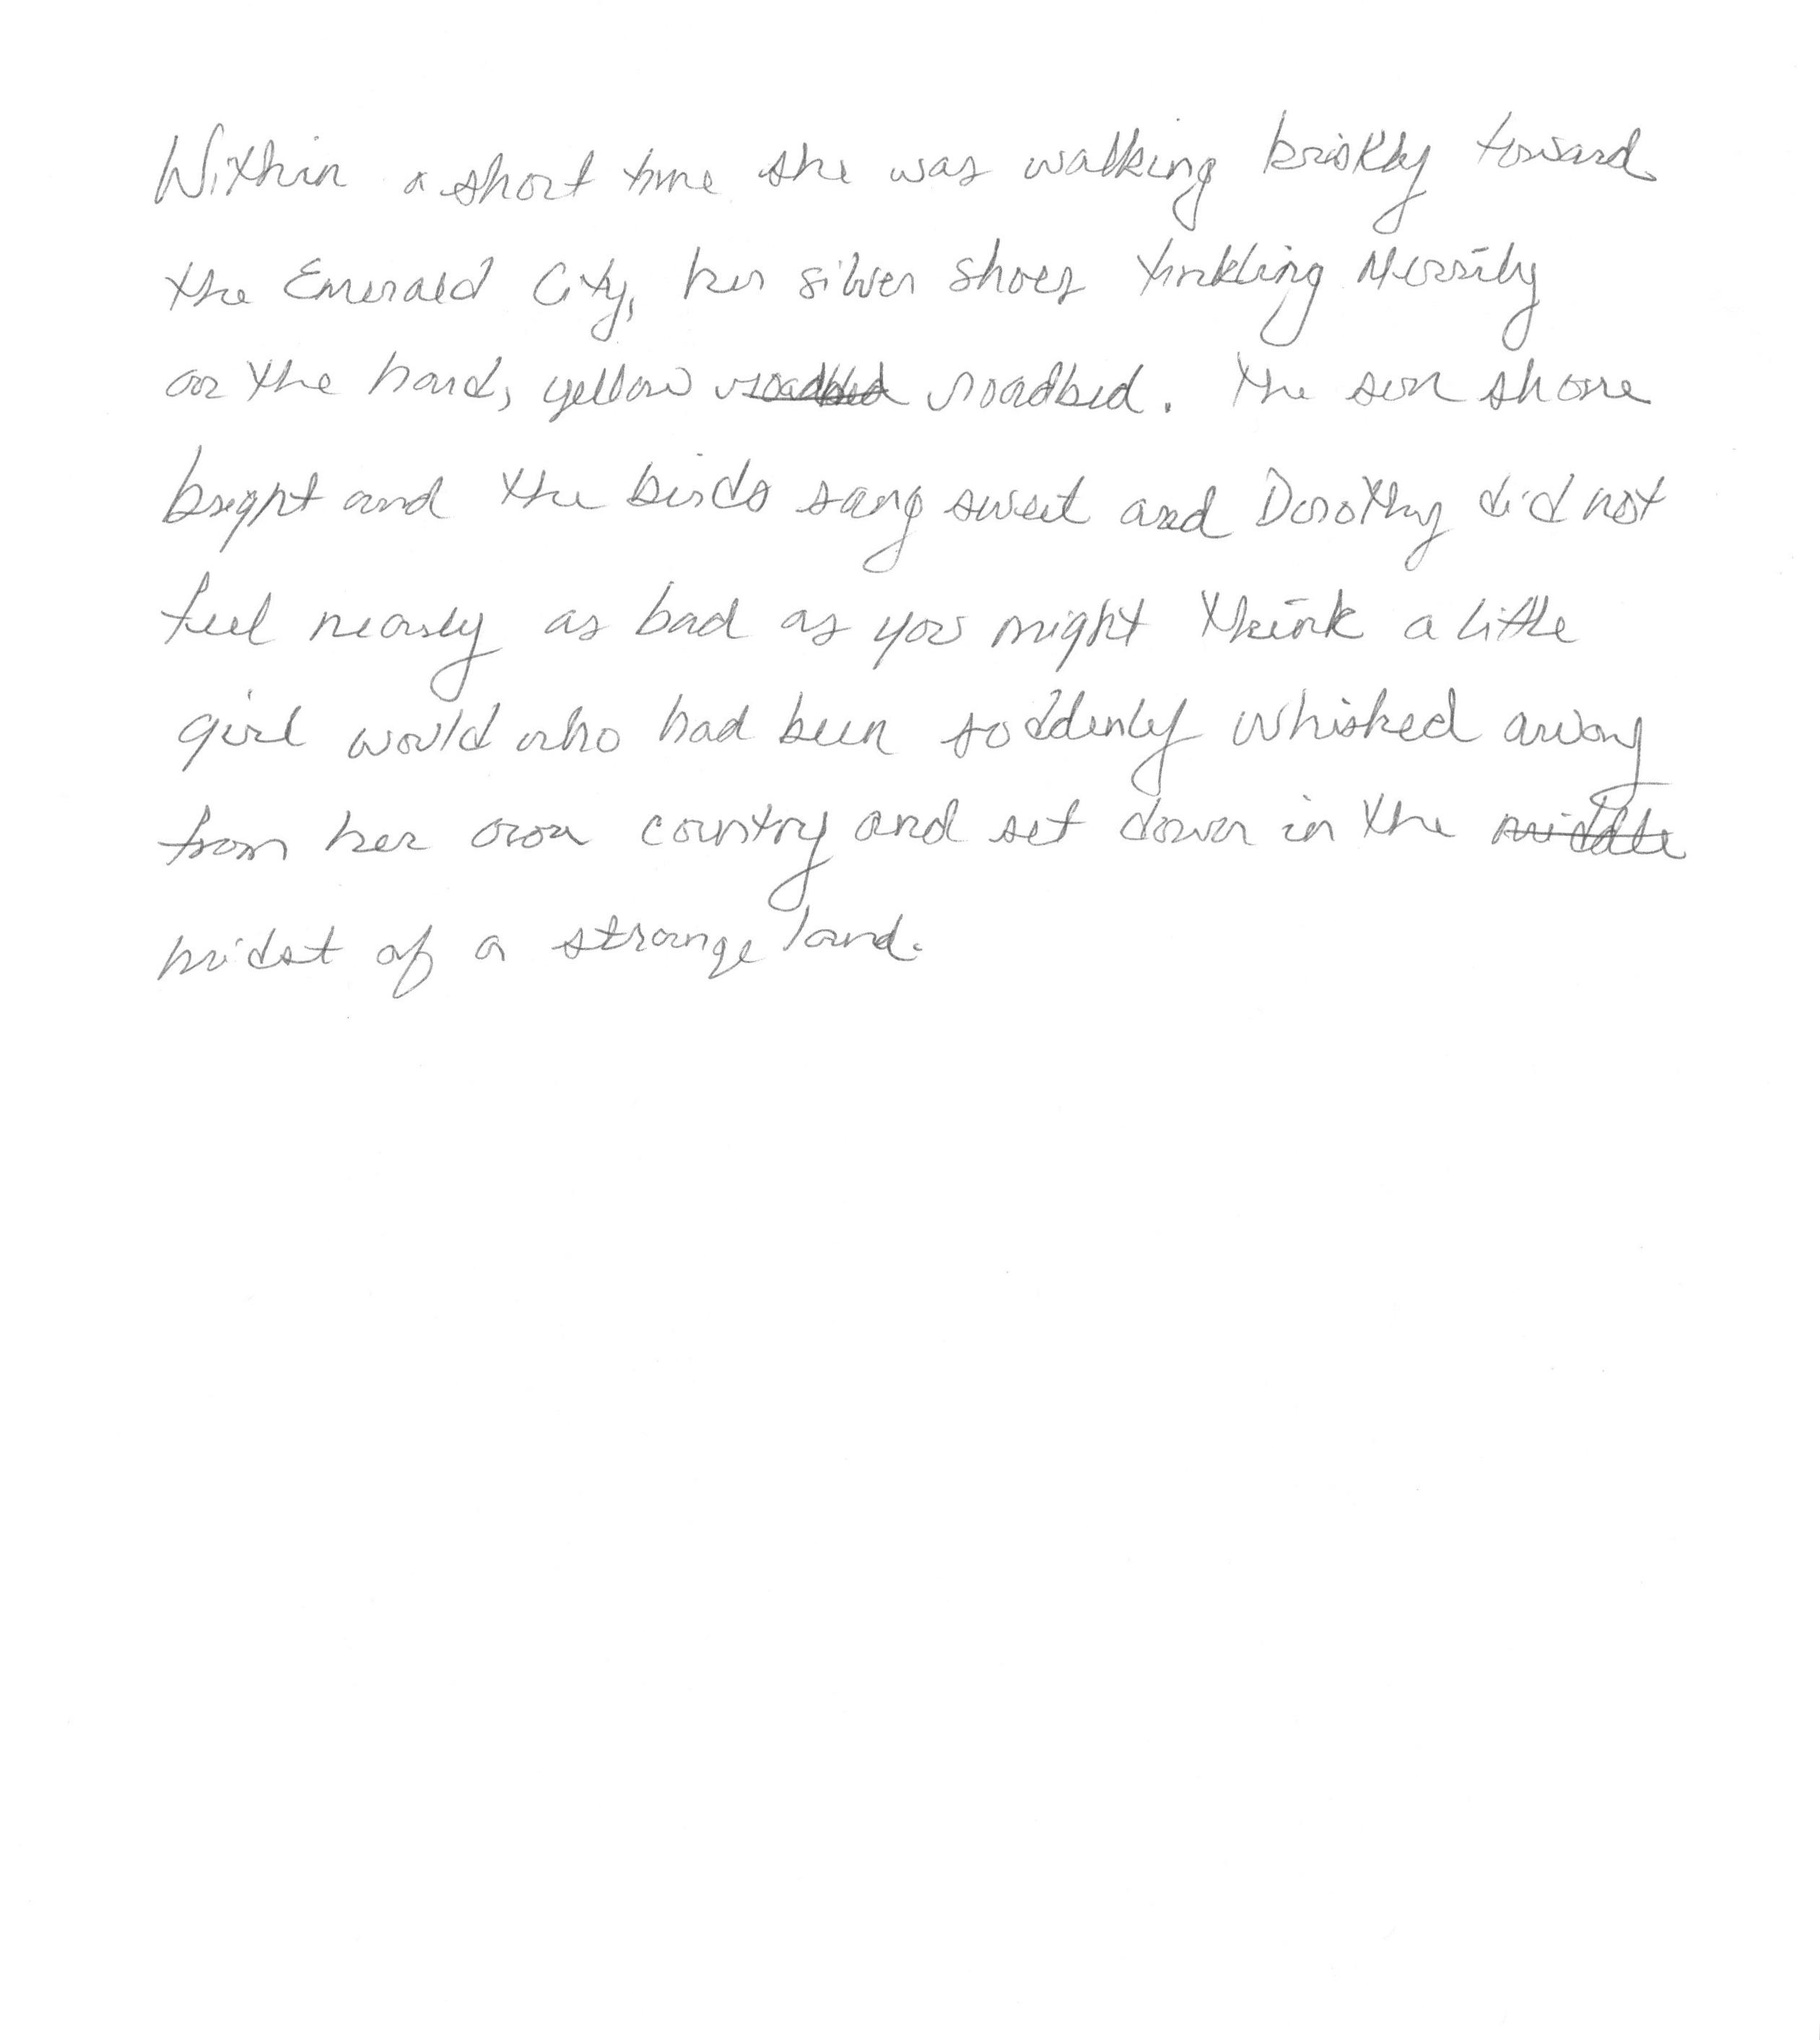 Within a short time she was walking briskly toward
the Emerald City, her silver shoes tinkling Merrily
on the hard, yellow roadbed roadbed. The sun shone
bright and the birds sang sweet and Dorothy did not
feel nearly as bad as you might think a little
girl would who had been suddenly whisked away
from her own country and set down in the middle
midst of a strange land.